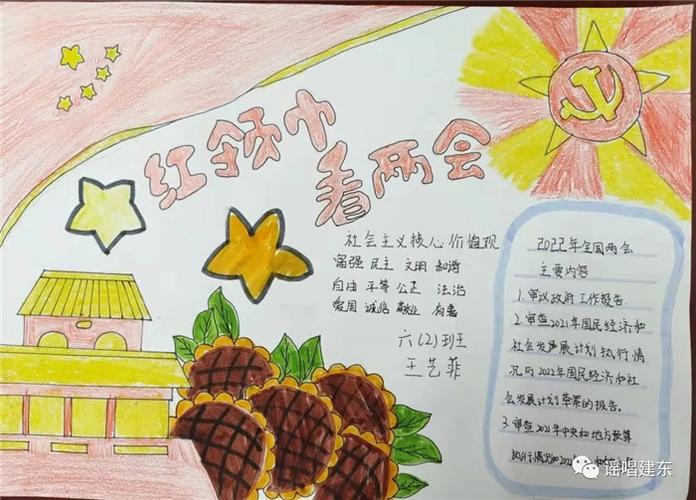 红领巾
看两会
社会主义核心价值观
富强 民主 文明 和谐
自由 平等 公正 法治
爱国 诚信 敬业 友善
六(2)班
王艺菲
2022年全国两会
主要内容
1.审议政府工作报告.
2.审查2021年国民经济和
社会发声展计划执行情
况与2022年国民经济和社
会发展计划草案的报告。
3.审查2021年中央和地方预算
执行情况和202
谣唱建东